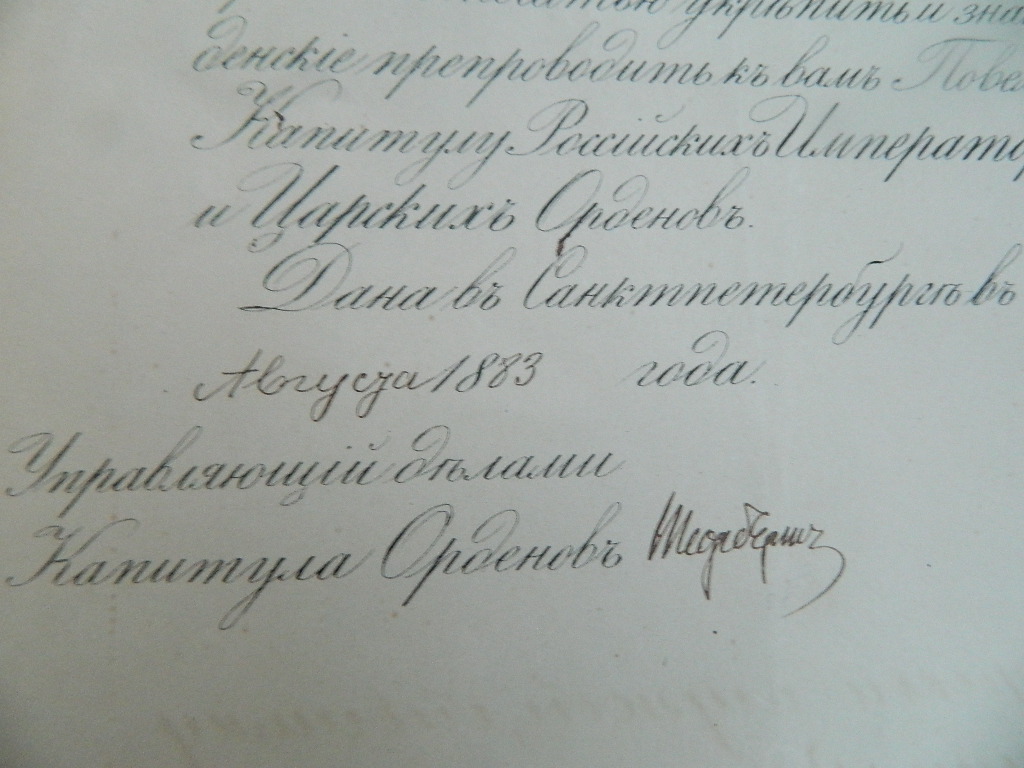 укрѣпить и зна
денскіе препроводить къ вамъ Повел
Капитулу Россійскихъ Императо
и Царскихъ Орденовъ.
Дана въ Санктпетербургѣ въ
Августа 1883 года.
Управляющій дѣлами
Капитула Орденовъ